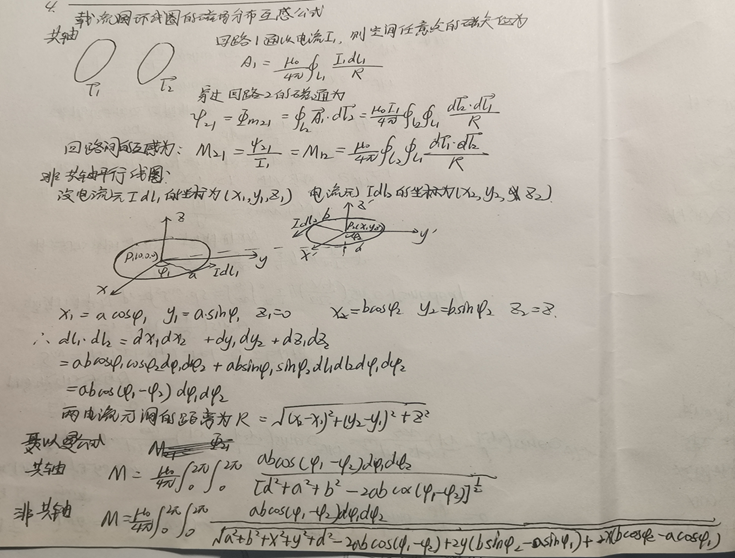 4. 载流圆环线圈的磁场分布互感公式
共轴
回路1通以电流I₁, 则空间任意处的磁矢位为
T₁ T₂
A₁ = μ₀/4π ∮L₁ I₁dl₁/R
穿过回路2的磁通为
ψ₂₁ = Φm₂₁ = ∮L₂ A⃗₁·dl⃗₂ = μ₀I₁/4π ∮L₂∮L₁ dl⃗₂·dl⃗₁/R
回路间的互感为: M₂₁ = ψ₂₁/I₁ = M₁₂ = μ₀/4π ∮L₂∮L₁ dl⃗₁·dl⃗₂/R
非共轴平行线圈:
设电流元Idl₁的坐标为(x₁,y₁,z₁) 电流元Idl₂的坐标为(x₂,y₂,z₂).
z P₁(0,0,0) φ₁ a Idl₁ y x
z′ Idl₂ b P₂(x,y,z) φ₂ y′ x′ d
x₁ = a cosφ₁ y₁ = a·sinφ₁ z₁=0 x₂=bcosφ₂ y₂=bsinφ₂ z₂=z.
∴ dl₁·dl₂ = dx₁dx₂ + dy₁dy₂ + dz₁dz₂
=abcosφ₁cosφ₂dφ₁dφ₂ + absinφ₁sinφ₂dl₁dl₂dφ₁dφ₂
=abcos(φ₁-φ₂)dφ₁dφ₂
两电流元间的距离为R = √(x₂-x₁)²+(y₂-y₁)²+z²
共轴 M = μ₀/4π ∫₀²π ∫₀²π abcos(φ₁-φ₂)dφ₁dφ₂/[d²+a²+b²-2ab cos(φ₁-φ₂)]^½
非共轴 M=μ₀/4π ∫₀²π ∫₀²π abcos(φ₁-φ₂)dφ₁dφ₂/√a²+b²+x²+y²+d²-2abcos(φ₁-φ₂)+2y(bsinφ₂-asinφ₁)+2x(bcosφ₂-acosφ₁)